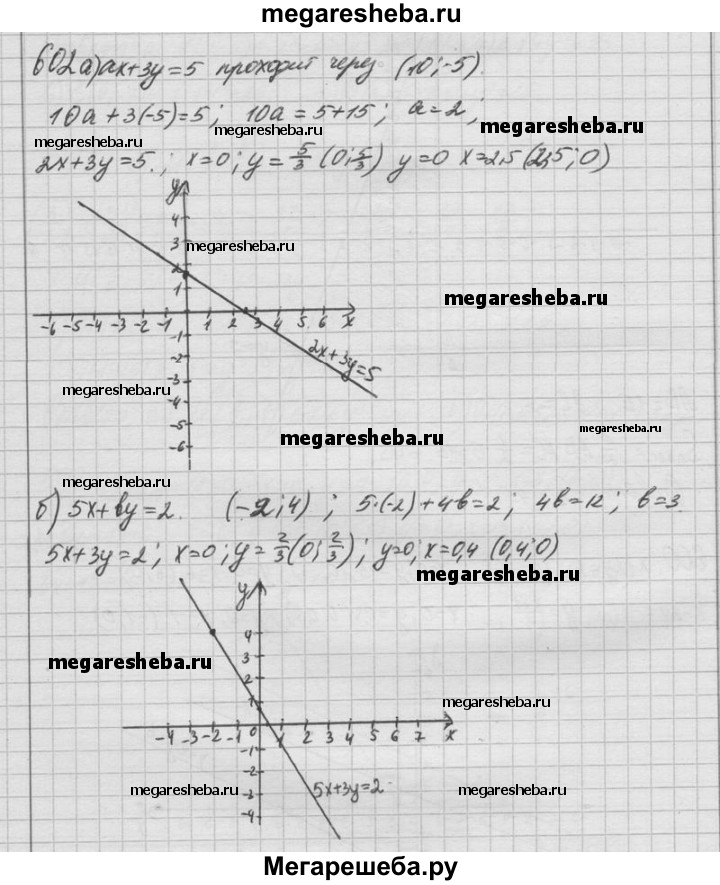 megaresheba.ru
602 а) ax+3y=5 проходит через (10;-5).
10a+3(-5)=5; 10a=5+15; a=2;
megaresheba.ru megaresheba.ru megaresheba.ru
2x+3y=5.; x=0; y=5/3 (0;5/3) y=0 x=2,5 (2,5;0)
y
4
3
megaresheba.ru
2
1
megaresheba.ru
-6 -5 -4 -3 -2 -1 1 2 3 4 5 6 x
-1
-2
2x+3y=5
-3
megaresheba.ru
-4
-5
megaresheba.ru megaresheba.ru
-6
megaresheba.ru
б) 5x+by=2. (-2;4); 5·(-2)+4b=2; 4b=12; b=3.
5x+3y=2; x=0; y=2/3 (0;2/3); y=0; x=0,4 (0,4;0)
megaresheba.ru
y
4
3
megaresheba.ru
2
1
megaresheba.ru
-4 -3 -2 -1 0 1 2 3 4 5 6 7 x
-1
-2
5x+3y=2
megaresheba.ru megaresheba.ru
-3
-4
Мегарешеба.ру